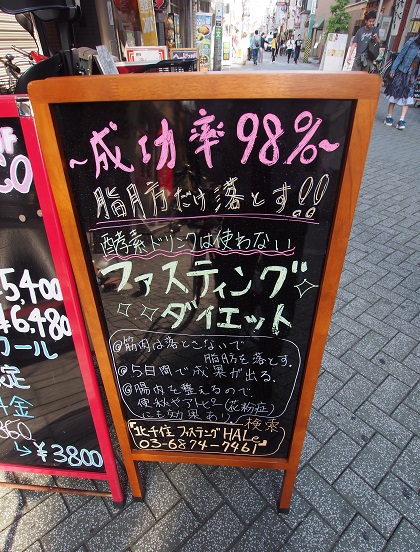 ~成功率98%~
脂肪だけ落とす!!
酵素ドリンクは使わない
ファスティング
ダイエット
◎筋肉は落とさないで
脂肪を落とす.
◎5日間で成果が出る.
◎腸内を整えるので
便秘やアトピー(花粉症)
にも効果あり
検索
北千住 ファスティング HALe
03-6874-7461
5,400
¥6,480
コール
定
金
360
→¥3800